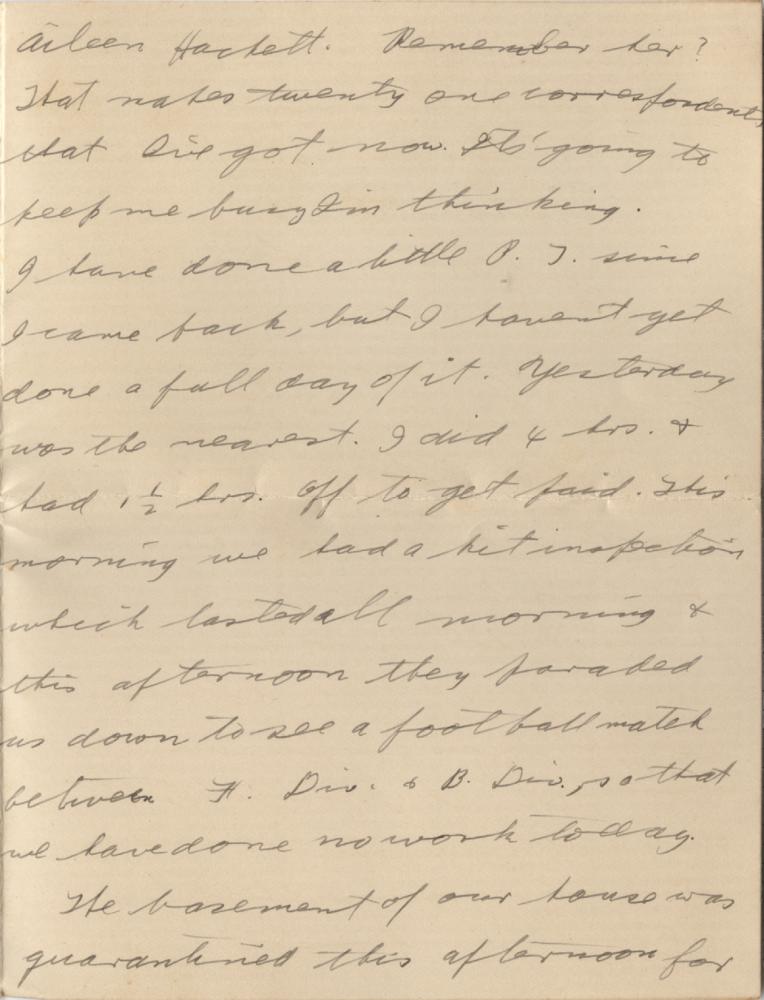 Aileen Hackett. Remember her?
That makes twenty one correspondents
that I've got now. It's going to
keep me busy I'm thinking.
I have done a little P. T. since
I came back, but I haven't yet
done a full day of it. Yesterday
was the nearest. I did 4 hrs. &
had 1½ hrs. off to get paid. This
morning we had a kit inspection
which lasted all morning &
this afternoon they paraded
us down to see a football match
between H. Div. & B. Div., so that
we have done no work today.
The basement of our house was
quarantined this afternoon for